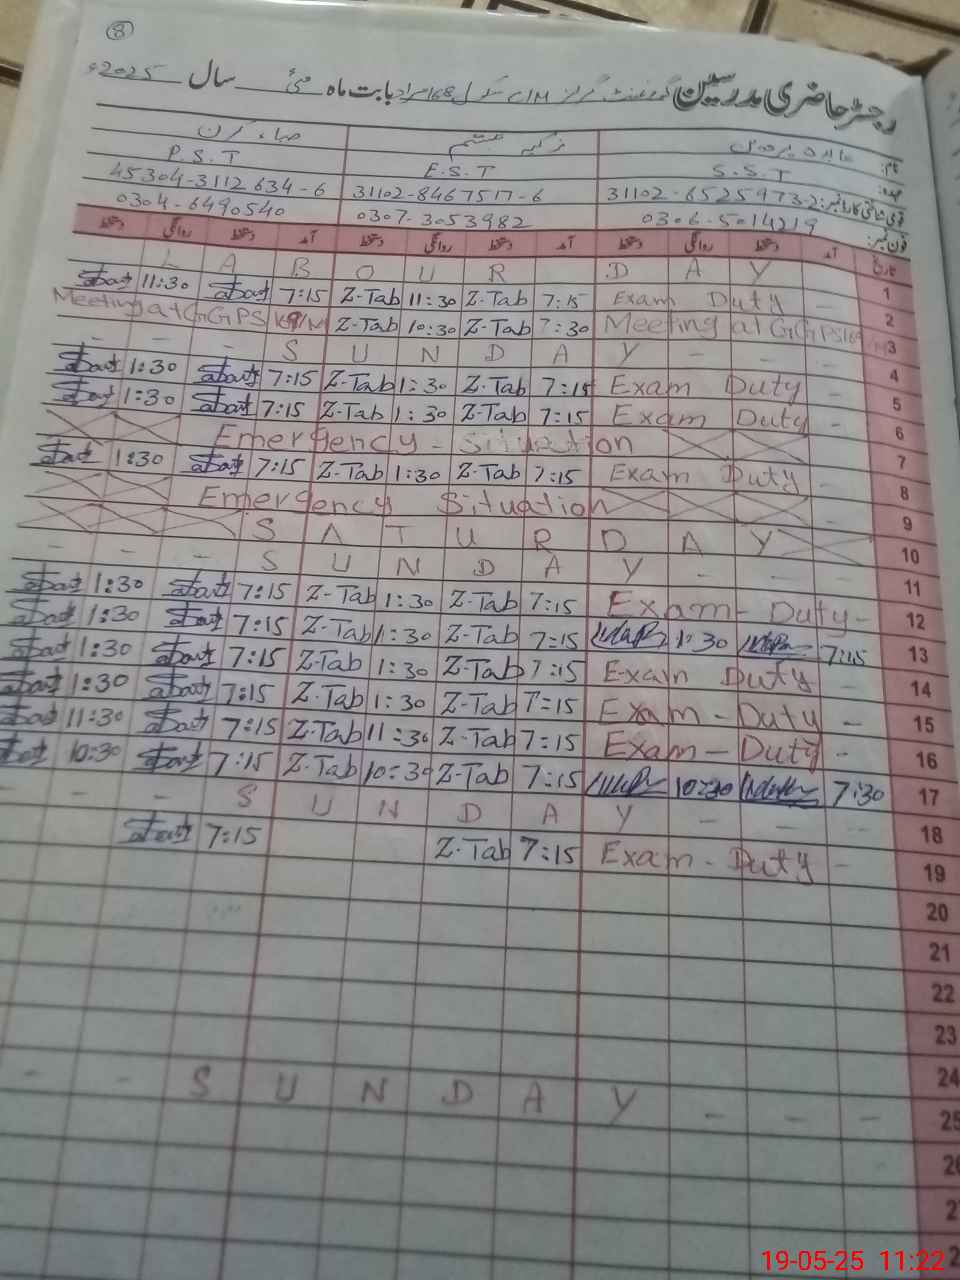 8
رجسٹر حاضری مدرسین گورنمنٹ گرلز C/M سکول 168 مراد بابت ماہ مئی سال 2025ء
نام:
عہدہ: S.S.T E.S.T P.S.T
قومی شناختی کارڈ نمبر: 31102-6525973-2 31102-8467517-6 45304-3112634-6
فون نمبر: 0306-5014219 0307-3053982 0304-6490540
تاریخ آمد دستخط روانگی دستخط آمد دستخط روانگی دستخط آمد دستخط روانگی دستخط
L A B O U R D A Y 1
11:30 7:15 Z-Tab 11:30 Z-Tab 7:15 Exam Duty - 2
Meeting at GGPS 169/M Z-Tab 10:30 Z-Tab 7:30 Meeting at GGPS 169/M 3
- - - S U N D A Y - - - 4
1:30 7:15 Z-Tab 1:30 Z-Tab 7:15 Exam Duty - 5
1:30 7:15 Z-Tab 1:30 Z-Tab 7:15 Exam Duty - 6
Emergency - Situation 7
1:30 7:15 Z-Tab 1:30 Z-Tab 7:15 Exam Duty - 8
Emergency Situation 9
S A T U R D A Y 10
- - - S U N D A Y - - - 11
1:30 7:15 Z-Tab 1:30 Z-Tab 7:15 Exam - Duty - 12
1:30 7:15 Z-Tab 1:30 Z-Tab 7:15 1:30 7:15 13
1:30 7:15 Z-Tab 1:30 Z-Tab 7:15 Exam Duty - 14
1:30 7:15 Z-Tab 1:30 Z-Tab 7:15 Exam - Duty - 15
11:30 7:15 Z-Tab 11:30 Z-Tab 7:15 Exam - Duty - 16
10:30 7:15 Z-Tab 10:30 Z-Tab 7:15 10:30 7:30 17
- - - S U N D A Y - - - 18
7:15 Z-Tab 7:15 Exam - Duty - 19
20
21
22
23
24
- - S U N D A Y - - - 25
26
2
2
19-05-25 11:22